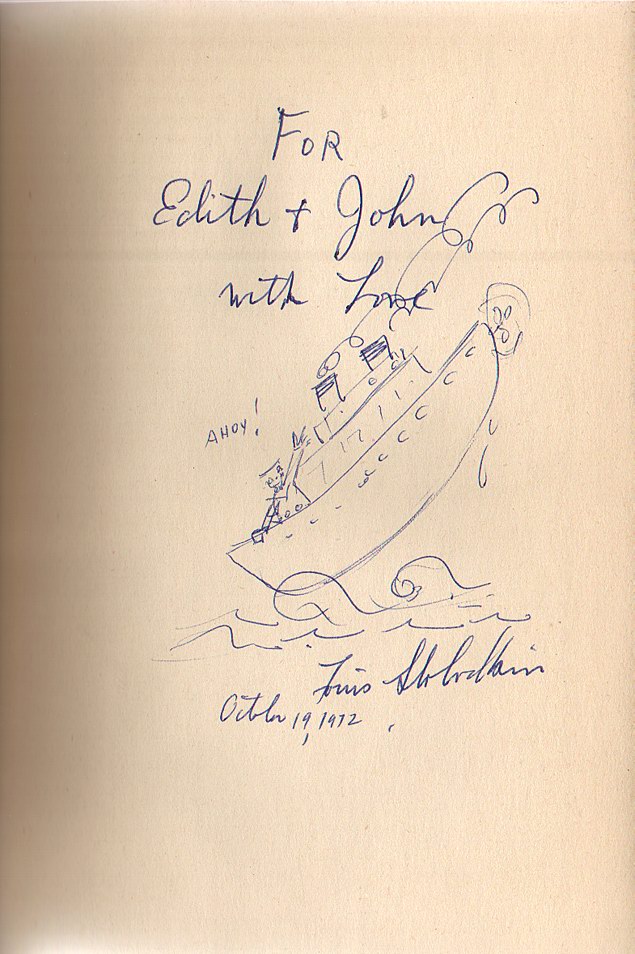 FOR
Edith + John
with Love
AHOY!
Louis Slobodkin
October 19, 1972